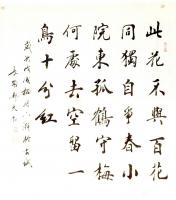 此花不與百花
同獨自爭春小
院東孤鶴守梅
何處去空留一
鳥十分紅